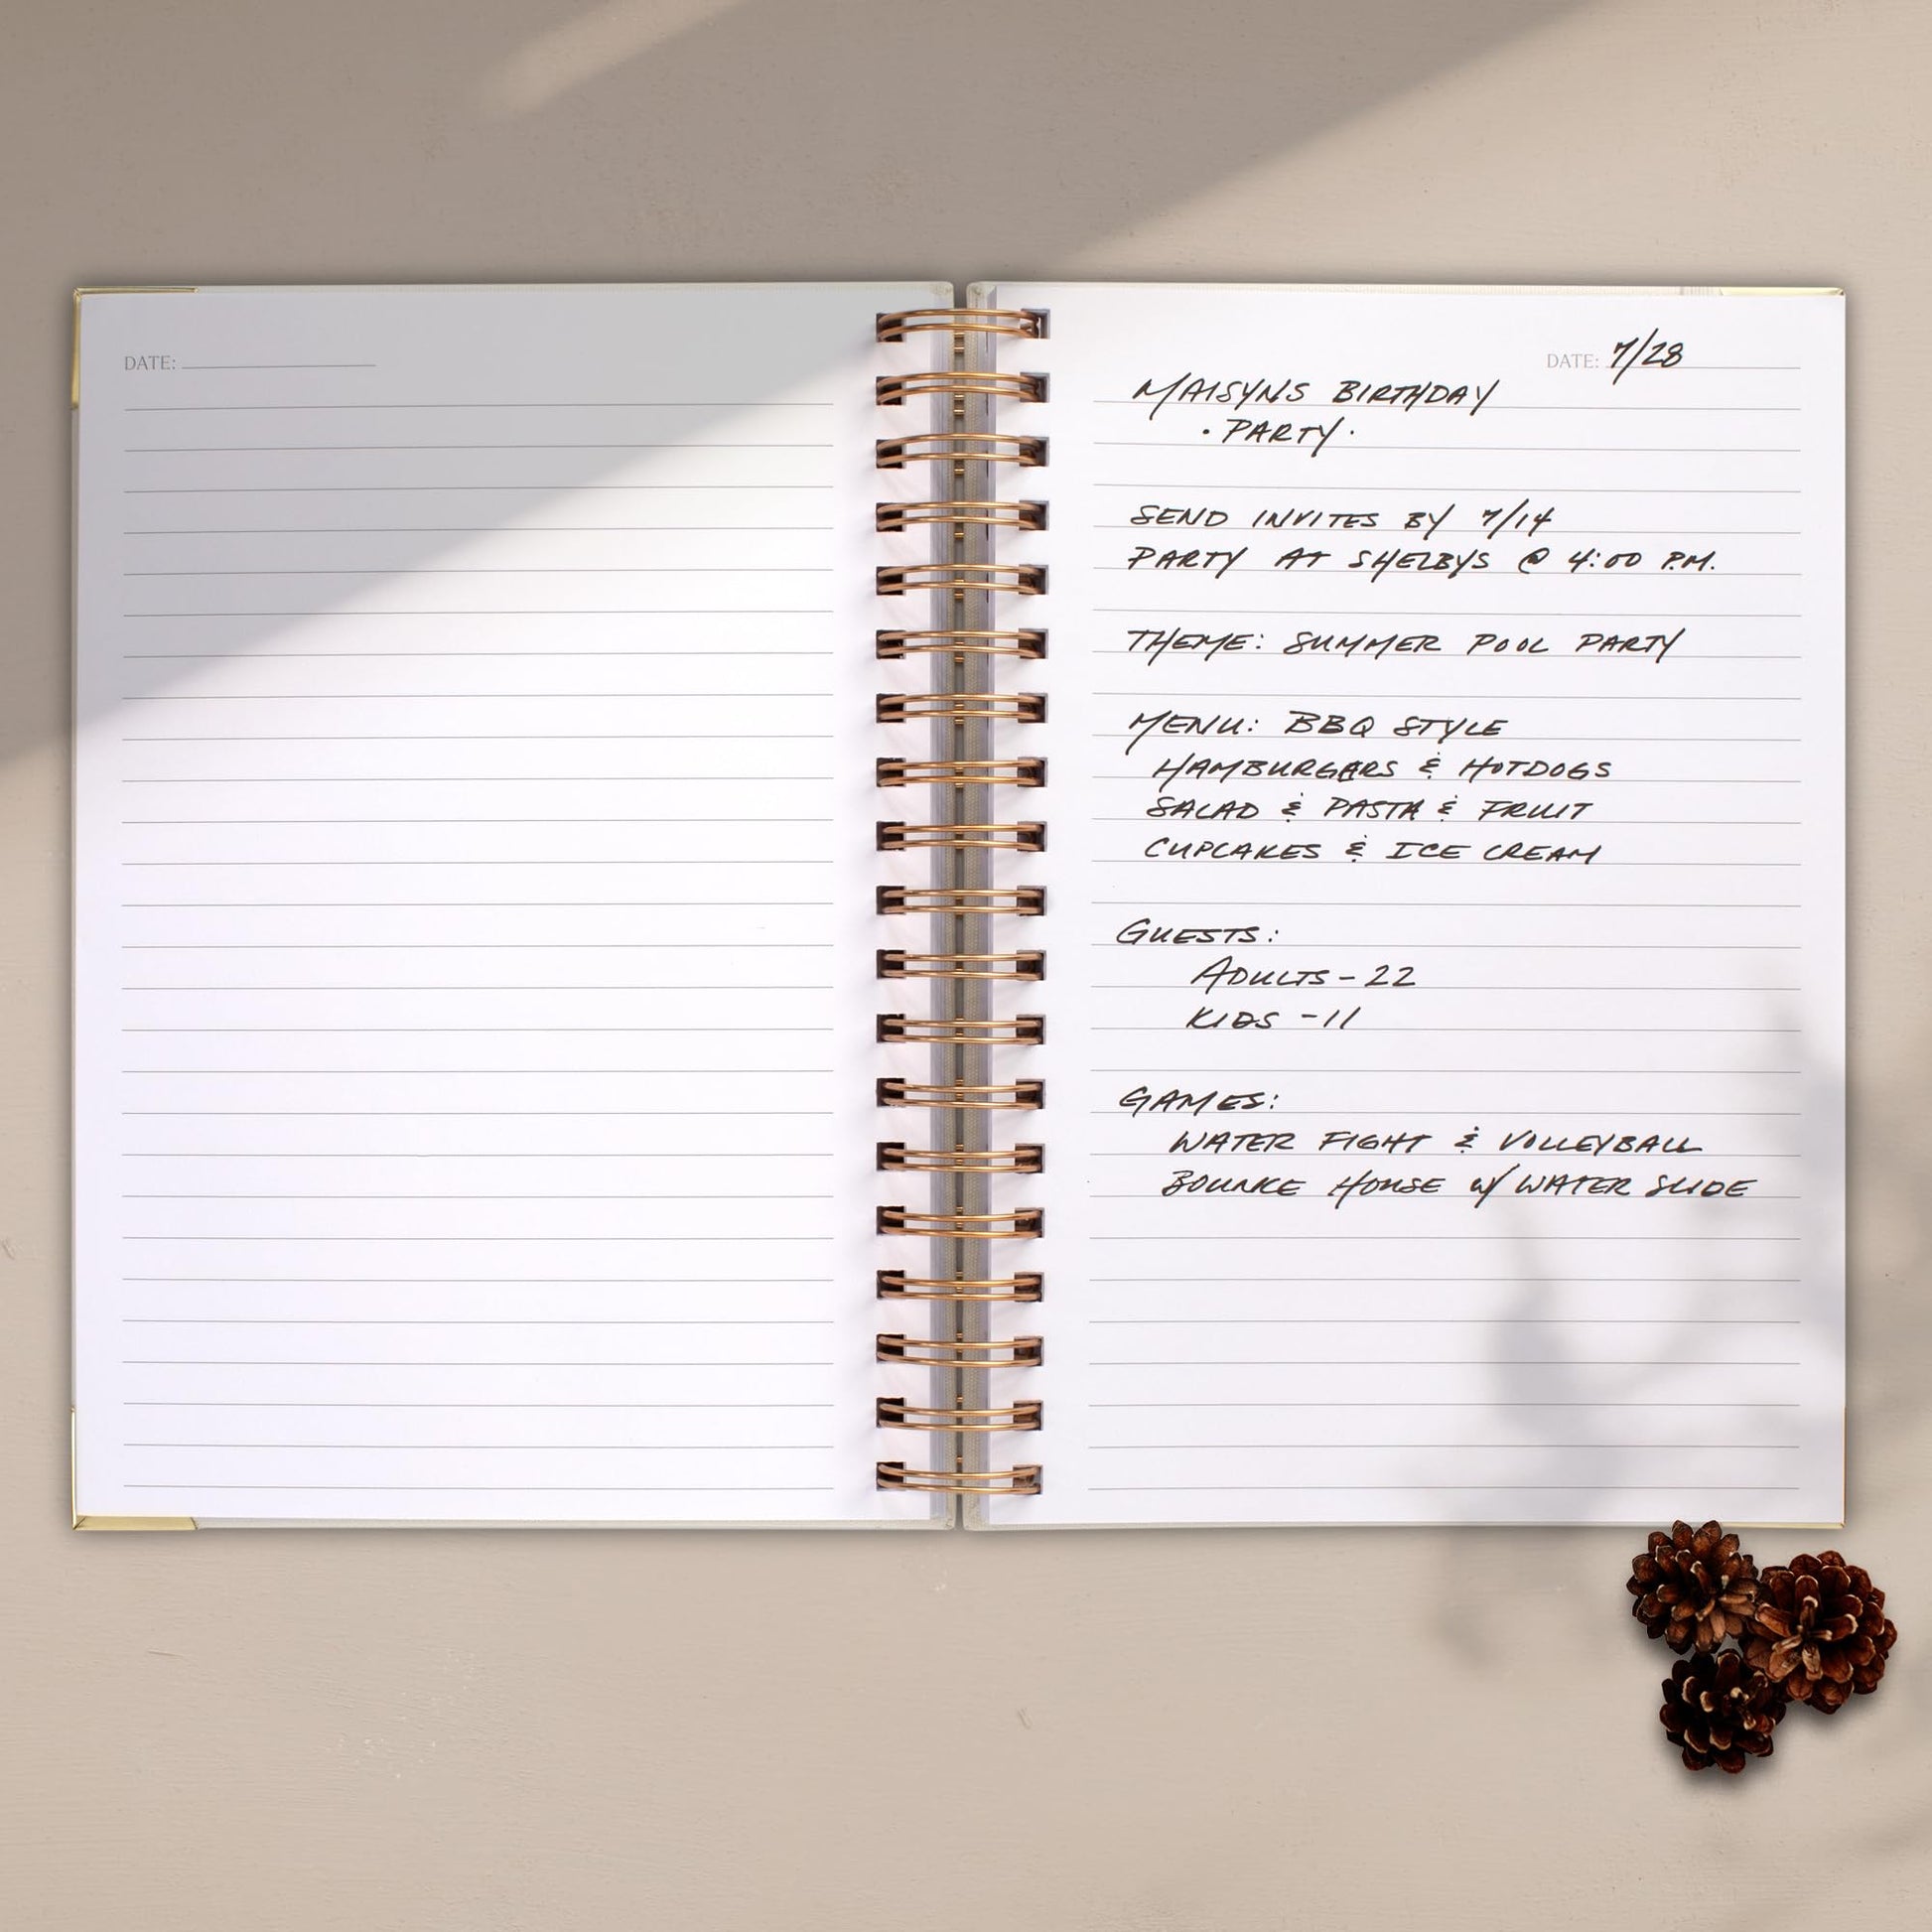 DATE:
DATE: 7/28
MAISYNS BIRTHDAY
· PARTY ·
SEND INVITES BY 7/14
PARTY AT SHELBYS @ 4:00 P.M.
THEME: SUMMER POOL PARTY
MENU: BBQ STYLE
HAMBURGERS & HOTDOGS
SALAD & PASTA & FRUIT
CUPCAKES & ICE CREAM
GUESTS:
ADULTS - 22
KIDS - 11
GAMES:
WATER FIGHT & VOLLEYBALL
BOUNCE HOUSE W/ WATER SLIDE